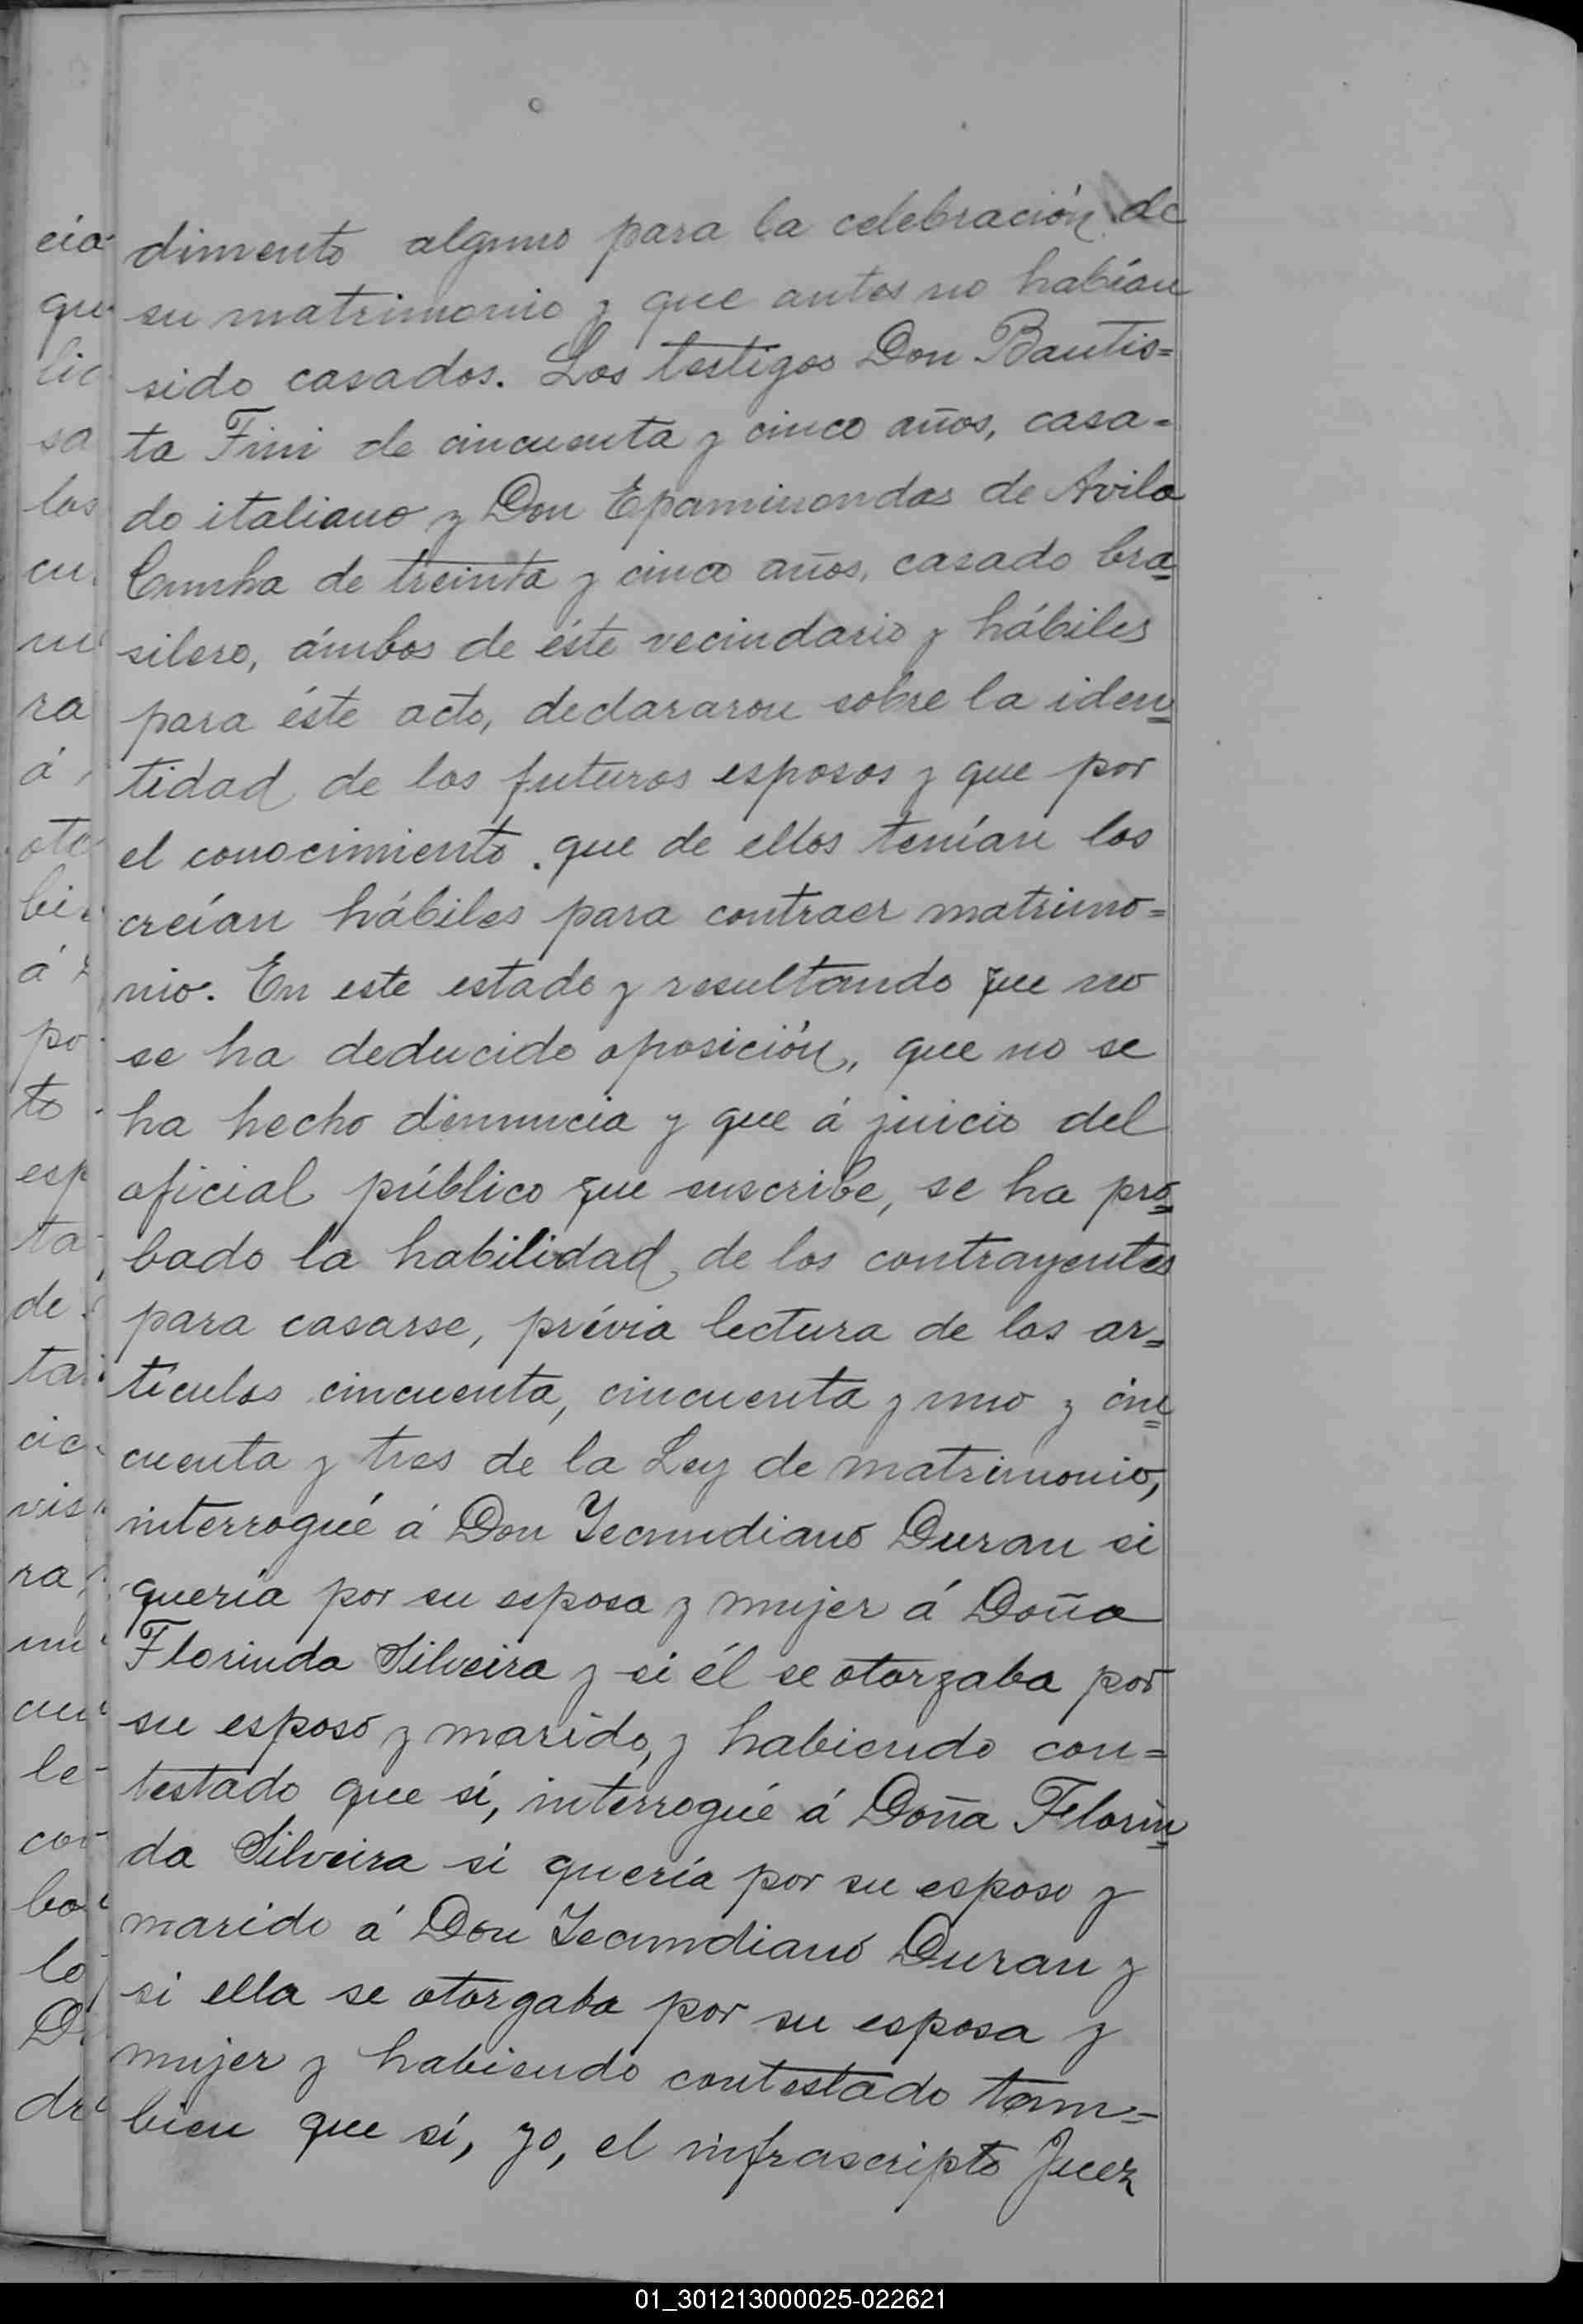 dimento alguno para la celebración de
su matrimonio y que antes no habían
sido casados. Los testigos Don Bautis=
ta Fini de cincuenta y cinco años, casa=
do italiano y Don Epaminondas de Avila
Cunha de treinta y cinco años, casado bra=
silero, ámbos de éste vecindario y hábiles
para éste acto, declararon sobre la iden=
tidad de los futuros esposos y que por
el conocimiento que de ellos tenían los
creían hábiles para contraer matrimo=
nio. En este estado y resultando que no
se ha deducido oposición, que no se
ha hecho dinuncia y que á juicio del
oficial público que suscribe, se ha pro=
bado la habilidad de los contrayentes
para casarse, prévia lectura de los ar=
tículos cincuenta, cincuenta y uno y cin=
cuenta y tres de la Ley de matrimonio,
interrogué á Don Secundiano Duran si
quería por su esposa y mujer á Doña
Florinda Silveira y si él se otorgaba por
su esposo y marido, y habiendo con=
testado que sí, interrogué á Doña Florin=
da Silveira si quería por su esposo y
marido á Don Secundiano Duran y
si ella se otorgaba por su esposa y
mujer y habiendo contestado tam=
bien que sí, yo, el infrascripto Juez
01_301213000025-022621